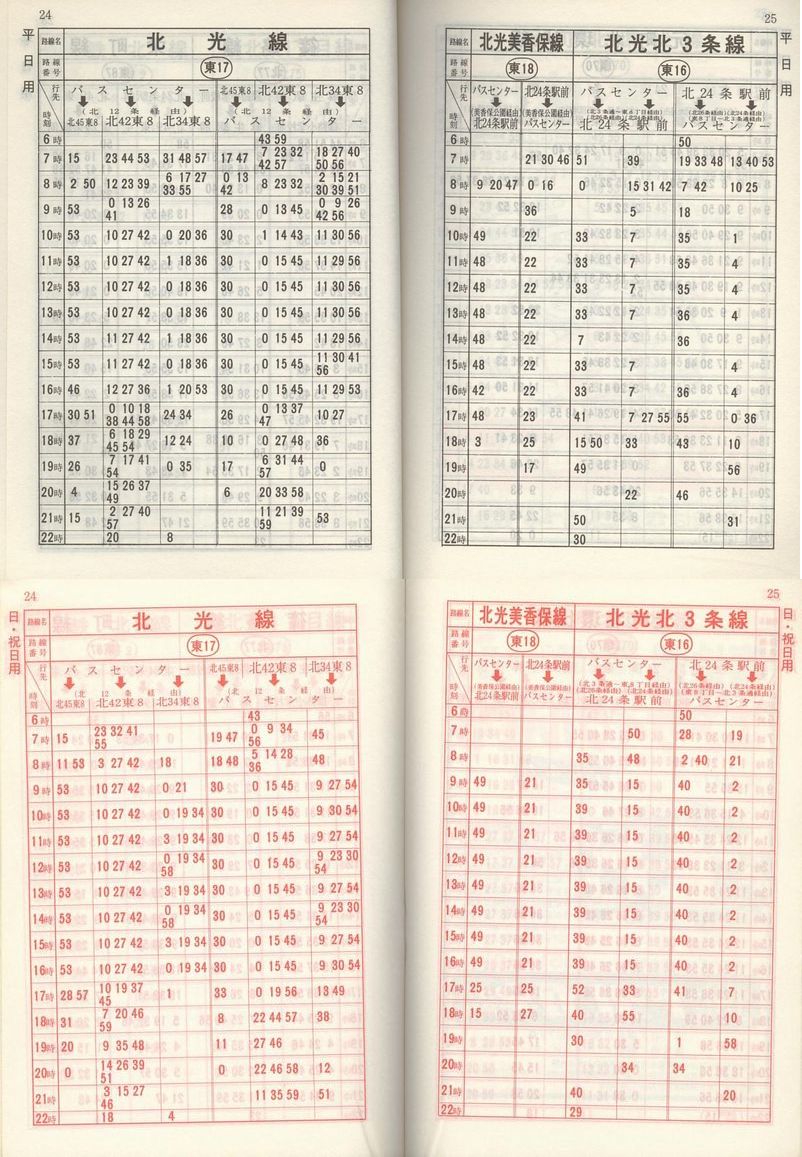 24
平日用
路線名 北光線
路線番号 東17
行先 時刻 バスセンター 北45東8 北42東8 北34東8
(北12条経由) (北12条経由)
北45東8 北42東8 北34東8 バスセンター
6時 43 59
7時 15 23 44 53 31 48 57 17 47 7 23 32 42 57 18 27 40 50 56
8時 2 50 12 23 39 6 17 27 33 55 0 13 42 8 23 32 2 15 21 30 39 51
9時 53 0 13 26 41 28 0 13 45 0 9 26 42 56
10時 53 10 27 42 0 20 36 30 1 14 43 11 30 56
11時 53 10 27 42 1 18 36 30 0 15 45 11 29 56
12時 53 10 27 42 0 18 36 30 0 15 45 11 30 56
13時 53 10 27 42 0 18 36 30 0 15 45 11 29 56
14時 53 11 27 42 1 18 36 30 0 15 45 11 29 56
15時 53 11 27 42 0 18 36 30 0 15 45 11 30 41 56
16時 46 12 27 36 1 20 53 30 0 15 45 11 29 53
17時 30 51 0 10 18 38 44 58 24 34 26 0 13 37 47 10 27
18時 37 6 18 29 45 54 12 24 10 0 27 48 36
19時 26 7 17 41 54 0 35 17 6 31 44 57 0
20時 4 15 26 37 49 6 20 33 58
21時 15 2 27 40 57 11 21 39 59 53
22時 20 8
25
平日用
路線名 北光美香保線 北光北3条線
路線番号 東18 東16
行先 時刻 バスセンター 北24条駅前 バスセンター 北24条駅前
(美香保公園経由) (美香保公園経由) (北3条通〜東8丁目経由) (北26条経由) (北24条経由) (北26条経由) (北24条経由) (東8丁目〜北3条通経由)
北24条駅前 バスセンター 北24条駅前 バスセンター
6時 50
7時 21 30 46 51 39 19 33 48 13 40 53
8時 9 20 47 0 16 0 15 31 42 7 42 10 25
9時 36 5 18
10時 49 22 33 7 35 1
11時 48 22 33 7 35 4
12時 48 22 33 7 35 4
13時 48 22 33 7 36 4
14時 48 22 7 36
15時 48 22 33 7 4
16時 42 22 33 7 36 4
17時 48 23 41 7 27 55 55 0 36
18時 3 25 15 50 33 43 10
19時 17 49 56
20時 22 46
21時 50 31
22時 30
24
日・祝日用
路線名 北光線
路線番号 東17
行先 時刻 バスセンター 北45東8 北42東8 北34東8
(北12条経由) (北12条経由)
北45東8 北42東8 北34東8 バスセンター
6時 43
7時 15 23 32 41 55 19 47 0 9 34 56 45
8時 11 53 3 27 42 18 18 48 5 14 28 36 48
9時 53 10 27 42 0 21 30 0 15 45 9 27 54
10時 53 10 27 42 0 19 34 30 0 15 45 9 30 54
11時 53 10 27 42 3 19 34 30 0 15 45 9 27 54
12時 53 10 27 42 0 19 34 58 30 0 15 45 9 23 30 54
13時 53 10 27 42 3 19 34 30 0 15 45 9 27 54
14時 53 10 27 42 0 19 34 58 30 0 15 45 9 23 30 54
15時 53 10 27 42 3 19 34 30 0 15 45 9 27 54
16時 53 10 27 42 0 19 34 30 0 15 45 9 30 54
17時 28 57 10 19 37 45 1 33 0 19 56 13 49
18時 31 7 20 46 59 8 22 44 57 38
19時 20 9 35 48 11 27 46
20時 0 14 26 39 51 0 22 46 58 12
21時 3 15 27 46 11 35 59 51
22時 18 4
25
日・祝日用
路線名 北光美香保線 北光北3条線
路線番号 東18 東16
行先 時刻 バスセンター 北24条駅前 バスセンター 北24条駅前
(美香保公園経由) (美香保公園経由) (北3条通〜東8丁目経由) (北26条経由) (北24条経由) (北26条経由) (北24条経由) (東8丁目〜北3条通経由)
北24条駅前 バスセンター 北24条駅前 バスセンター
6時 50
7時 50 28 19
8時 35 48 2 40 21
9時 49 21 35 15 40 2
10時 49 21 39 15 40 2
11時 49 21 39 15 40 2
12時 49 21 39 15 40 2
13時 49 21 39 15 40 2
14時 49 21 39 15 40 2
15時 49 21 39 15 40 2
16時 49 21 39 15 40 2
17時 25 25 52 33 41 7
18時 15 27 40 55 10
19時 30 1 58
20時 34 34
21時 40 20
22時 29